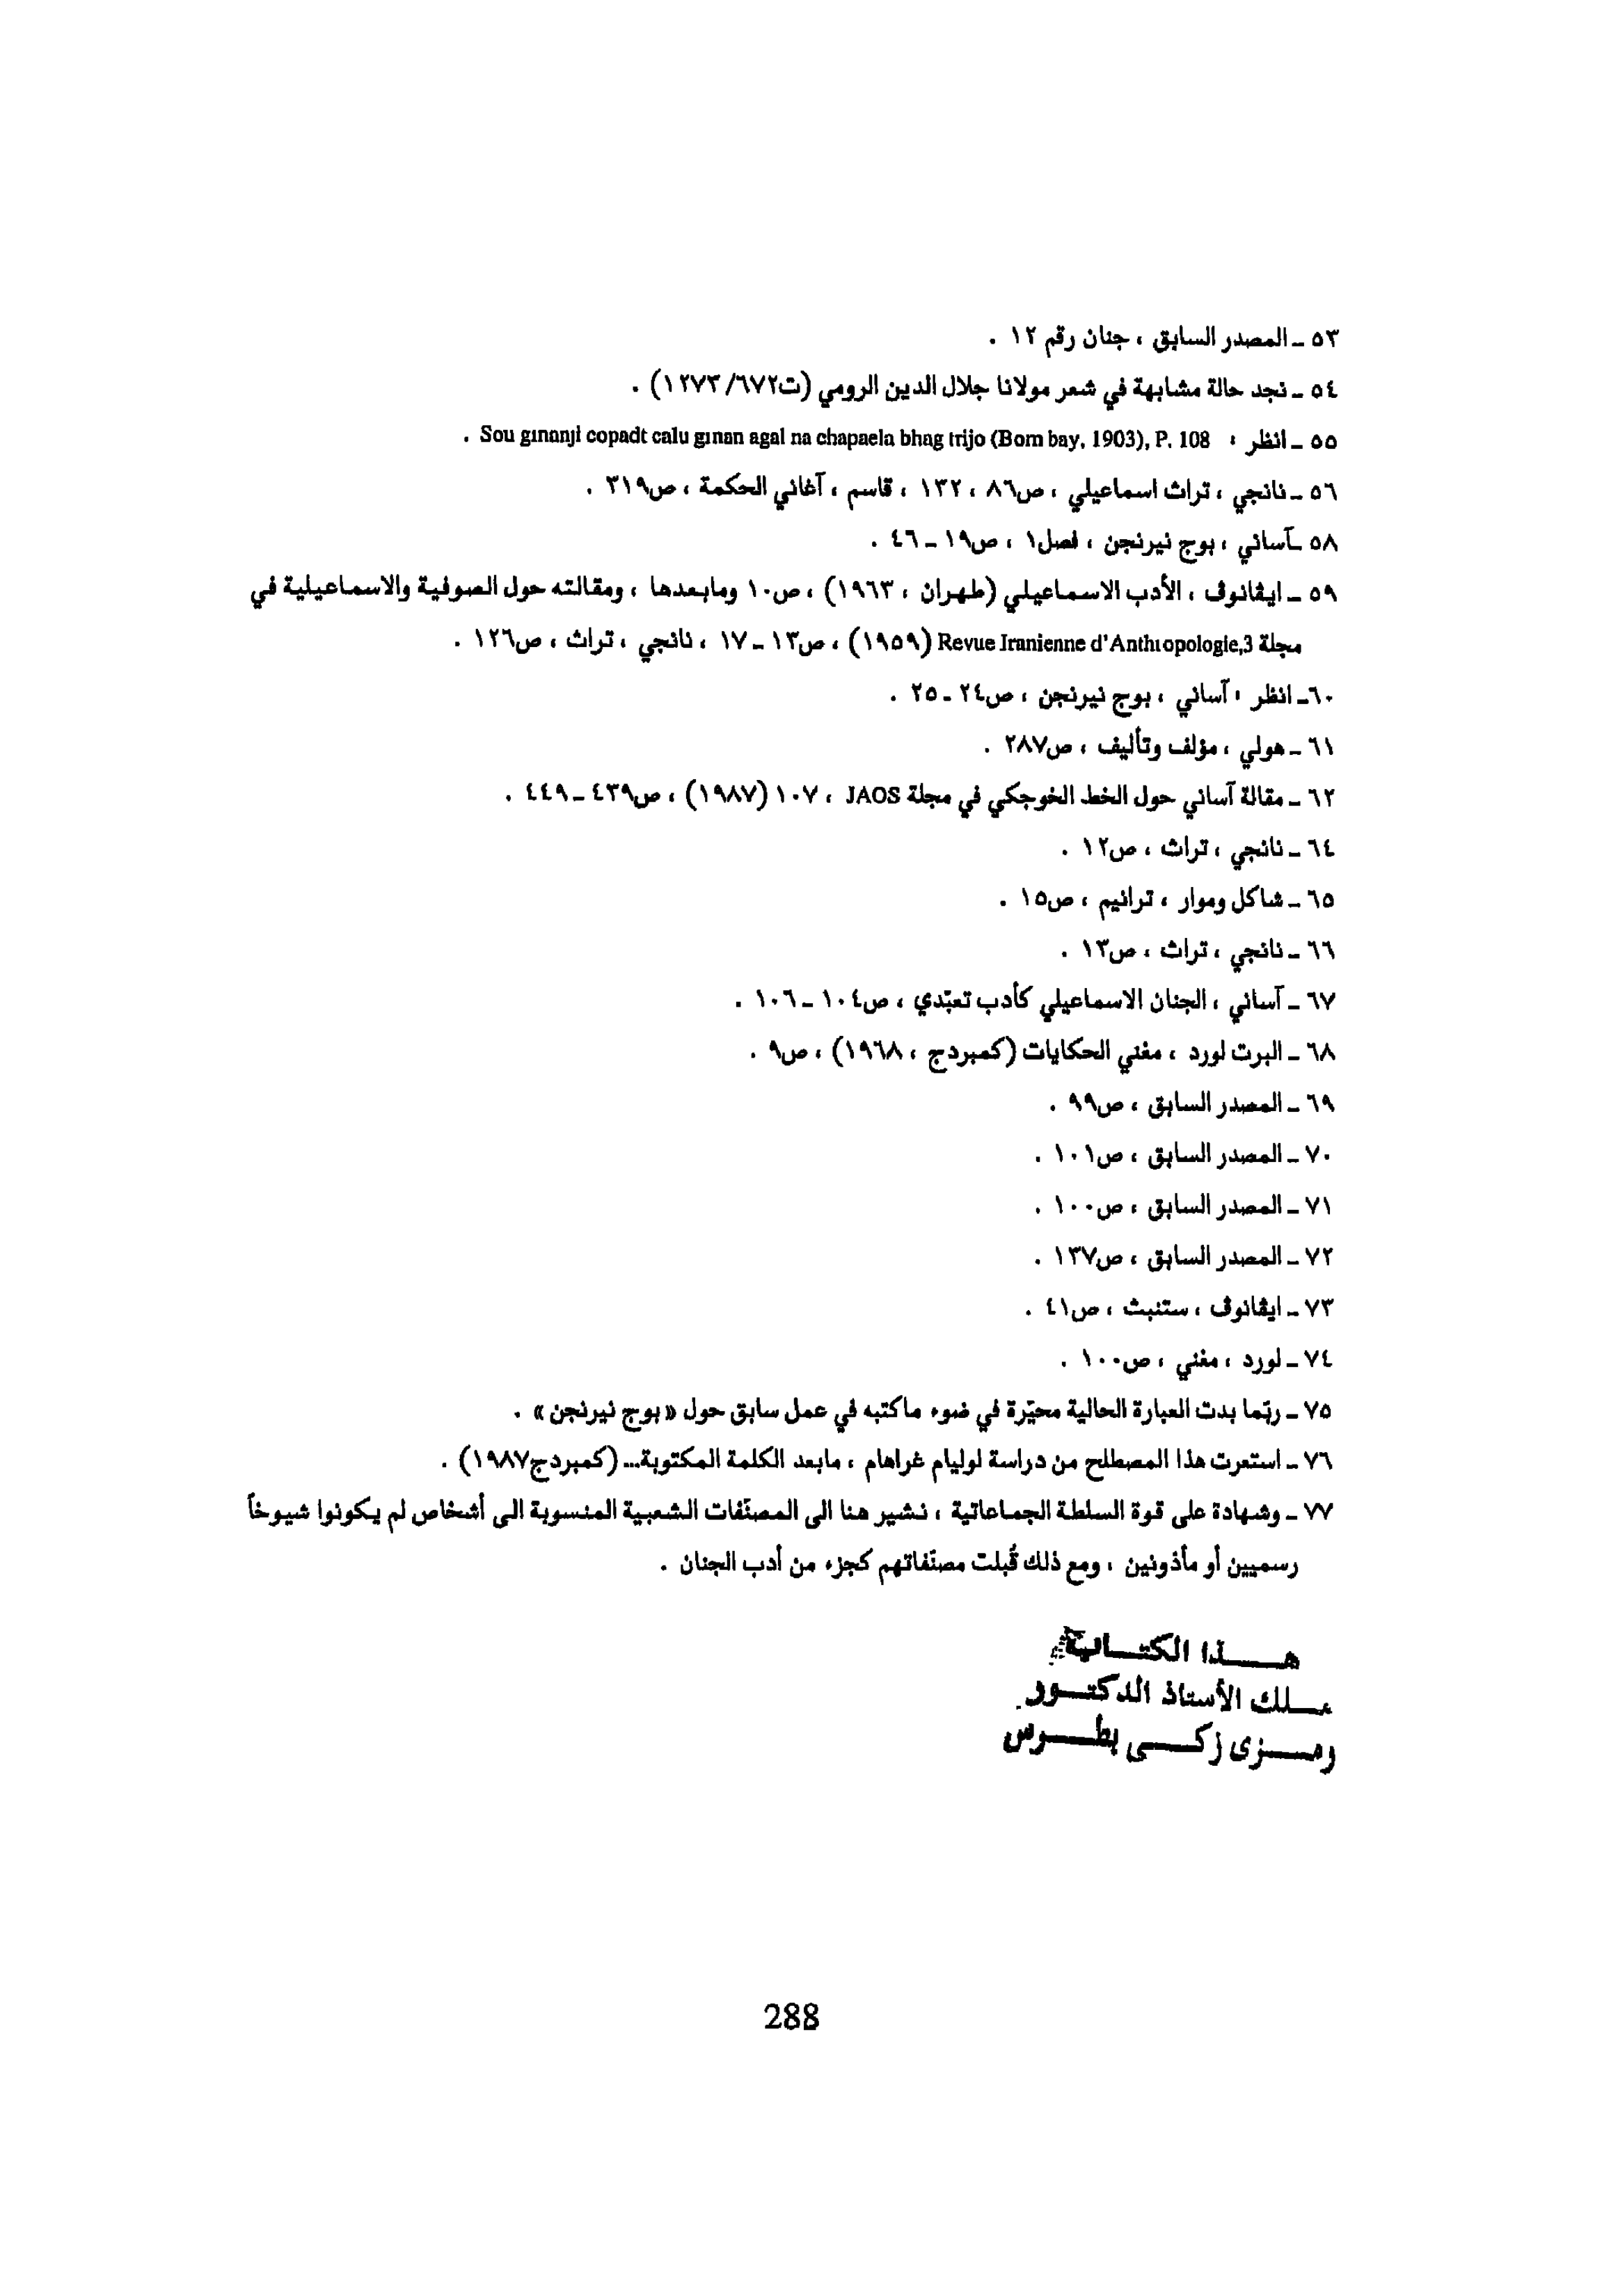 ٥٣ ـ المصدر السابق ، جنان رقم ١٢ .
٥٤ ـ نجد حالة مشابهة في شعر مولانا جلال الدين الرومي (ت٦٧٢/ ١٢٧٣) .
٥٥ ـ انظر : Sou gınanji copadt calu gınan agal na chapaela bhag trijo (Bom bay, 1903), P. 108 .
٥٦ ـ نانجي ، تراث اسماعيلي ، ص٨٦ ، ١٣٢ ، قاسم ، آغاني الحكمة ، ص٣١٩ .
٥٨ ـآساني ، بوج نيرنجن ، فصل١ ، ص١٩ ـ ٤٦ .
٥٩ ـ ايڤانوڤ ، الأدب الاسماعيلي (طهران ، ١٩٦٣) ، ص١٠ ومابعدها ، ومقالته حول الصوفية والاسماعيلية في
مجلة Revue Iranienne d'Anthıopologie,3 (١٩٥٩) ، ص١٣ ـ ١٧ ، نانجي ، تراث ، ص١٢٦ .
٦٠ـ انظر : آساني ، بوج نيرنجن ، ص٢٤ ـ ٢٥ .
٦١ ـ هولي ، مؤلف وتأليف ، ص٢٨٧ .
٦٢ ـ مقالة آساني حول الخط الخوجكي في مجلة JAOS ، ١٠٧ (١٩٨٧) ، ص٤٣٩ ـ ٤٤٩ .
٦٤ ـ نانجي ، تراث ، ص١٢ .
٦٥ ـ شاكل وموار ، ترانيم ، ص١٥ .
٦٦ ـ نانجي ، تراث ، ص١٣ .
٦٧ ـ آساني ، الجنان الاسماعيلي كأدب تعبّدي ، ص١٠٤ ـ ١٠٦ .
٦٨ ـ البرت لورد ، مغني الحكايات (كمبردج ، ١٩٦٨) ، ص٩ .
٦٩ ـ المصدر السابق ، ص٩٩ .
٧٠ ـ المصدر السابق ، ص١٠١ .
٧١ ـ المصدر السابق ، ص١٠٠ .
٧٢ ـ المصدر السابق ، ص١٣٧ .
٧٣ ـ ايڤانوڤ ، ستنبث ، ص٤١ .
٧٤ ـ لورد ، مغني ، ص١٠٠ .
٧٥ ـ ربّما بدت العبارة الحالية محيّرة في ضوء ماكتبه في عمل سابق حول «بوج نيرنجن» .
٧٦ ـ استعرت هذا المصطلح من دراسة لوليام غراهام ، مابعد الكلمة المكتوبة... (كمبردج١٩٨٧) .
٧٧ ـ وشهادة على قوة السلطة الجماعاتية ، نشير هنا الى المصنّفات الشعبية المنسوبة الى أشخاص لم يكونوا شيوخاً
رسميين أو مأذونين ، ومع ذلك قُبلت مصنّفاتهم كجزء من أدب الجنان .
هـــذا
ملك الأستاذ الدكتــور
رمــزى زكــى بطــرس
288